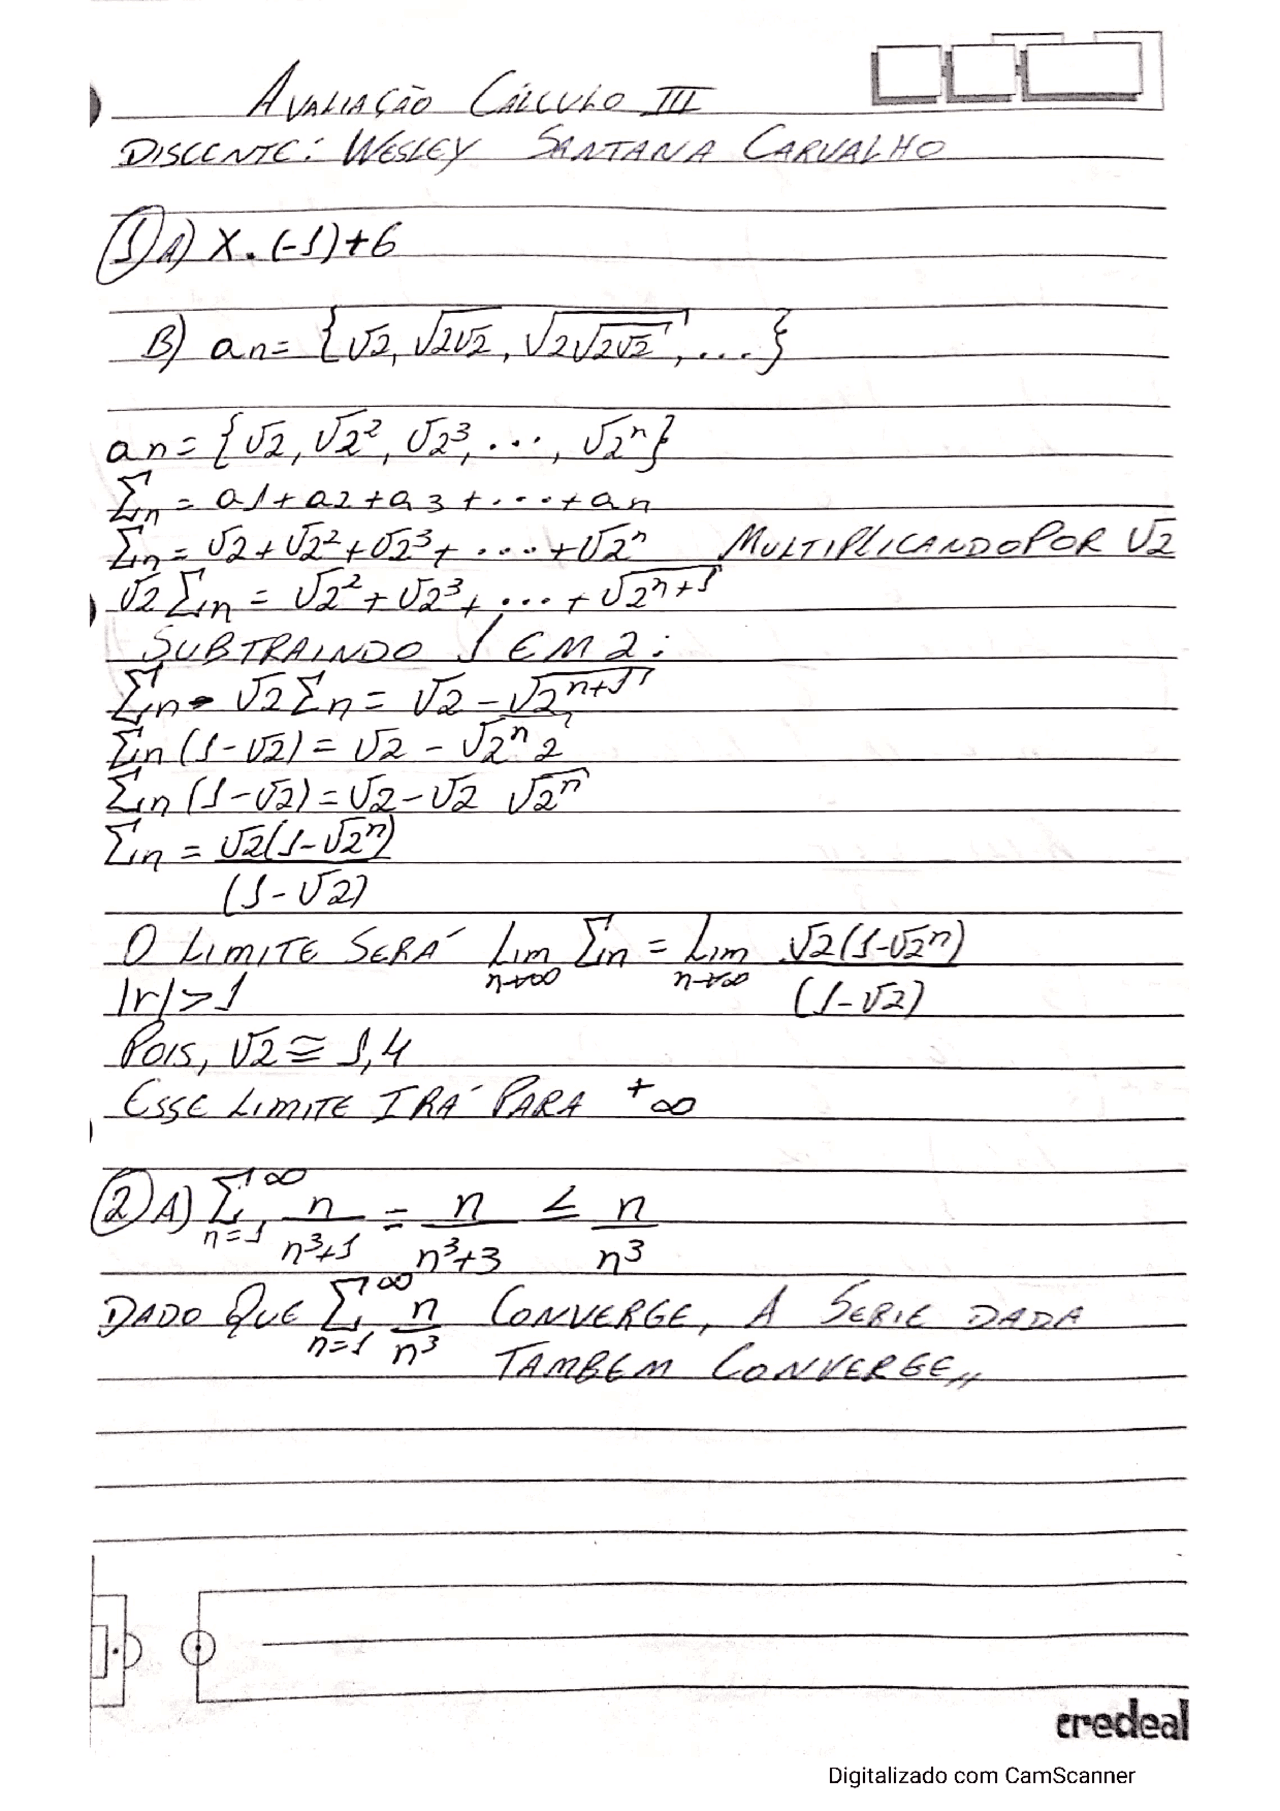 AVALIAÇÃO CÁLCULO III
DISCENTE: WESLEY SANTANA CARVALHO
1) A) X . (-1) + 6
B) an = {√2, √(2√2), √(2√(2√2)), ...}
an = {√2, √2², √2³, ..., √2ⁿ}
Σn = a1 + a2 + a3 + ... + an
Σn = √2 + √2² + √2³ + ... + √2ⁿ MULTIPLICANDO POR √2
√2 Σn = √2² + √2³ + ... + √2ⁿ⁺¹
SUBTRAINDO 1 EM 2:
Σn - √2 Σn = √2 - √2ⁿ⁺¹
Σn (1 - √2) = √2 - √2ⁿ 2
Σn (1 - √2) = √2 - √2 √2ⁿ
Σn = √2(1 - √2ⁿ) / (1 - √2)
O LIMITE SERÁ Lim n→∞ Σn = Lim n→∞ √2(1 - √2ⁿ) / (1 - √2)
|r| > 1
POIS, √2 ≅ 1,4
ESSE LIMITE IRÁ PARA +∞
2) A) Σ n=1 ∞ n/(n³+1) = n/(n³+3) ≤ n/n³
DADO QUE Σ n=1 ∞ n/n³ CONVERGE, A SERIE DADA
TAMBEM CONVERGE,,
credeal
Digitalizado com CamScanner